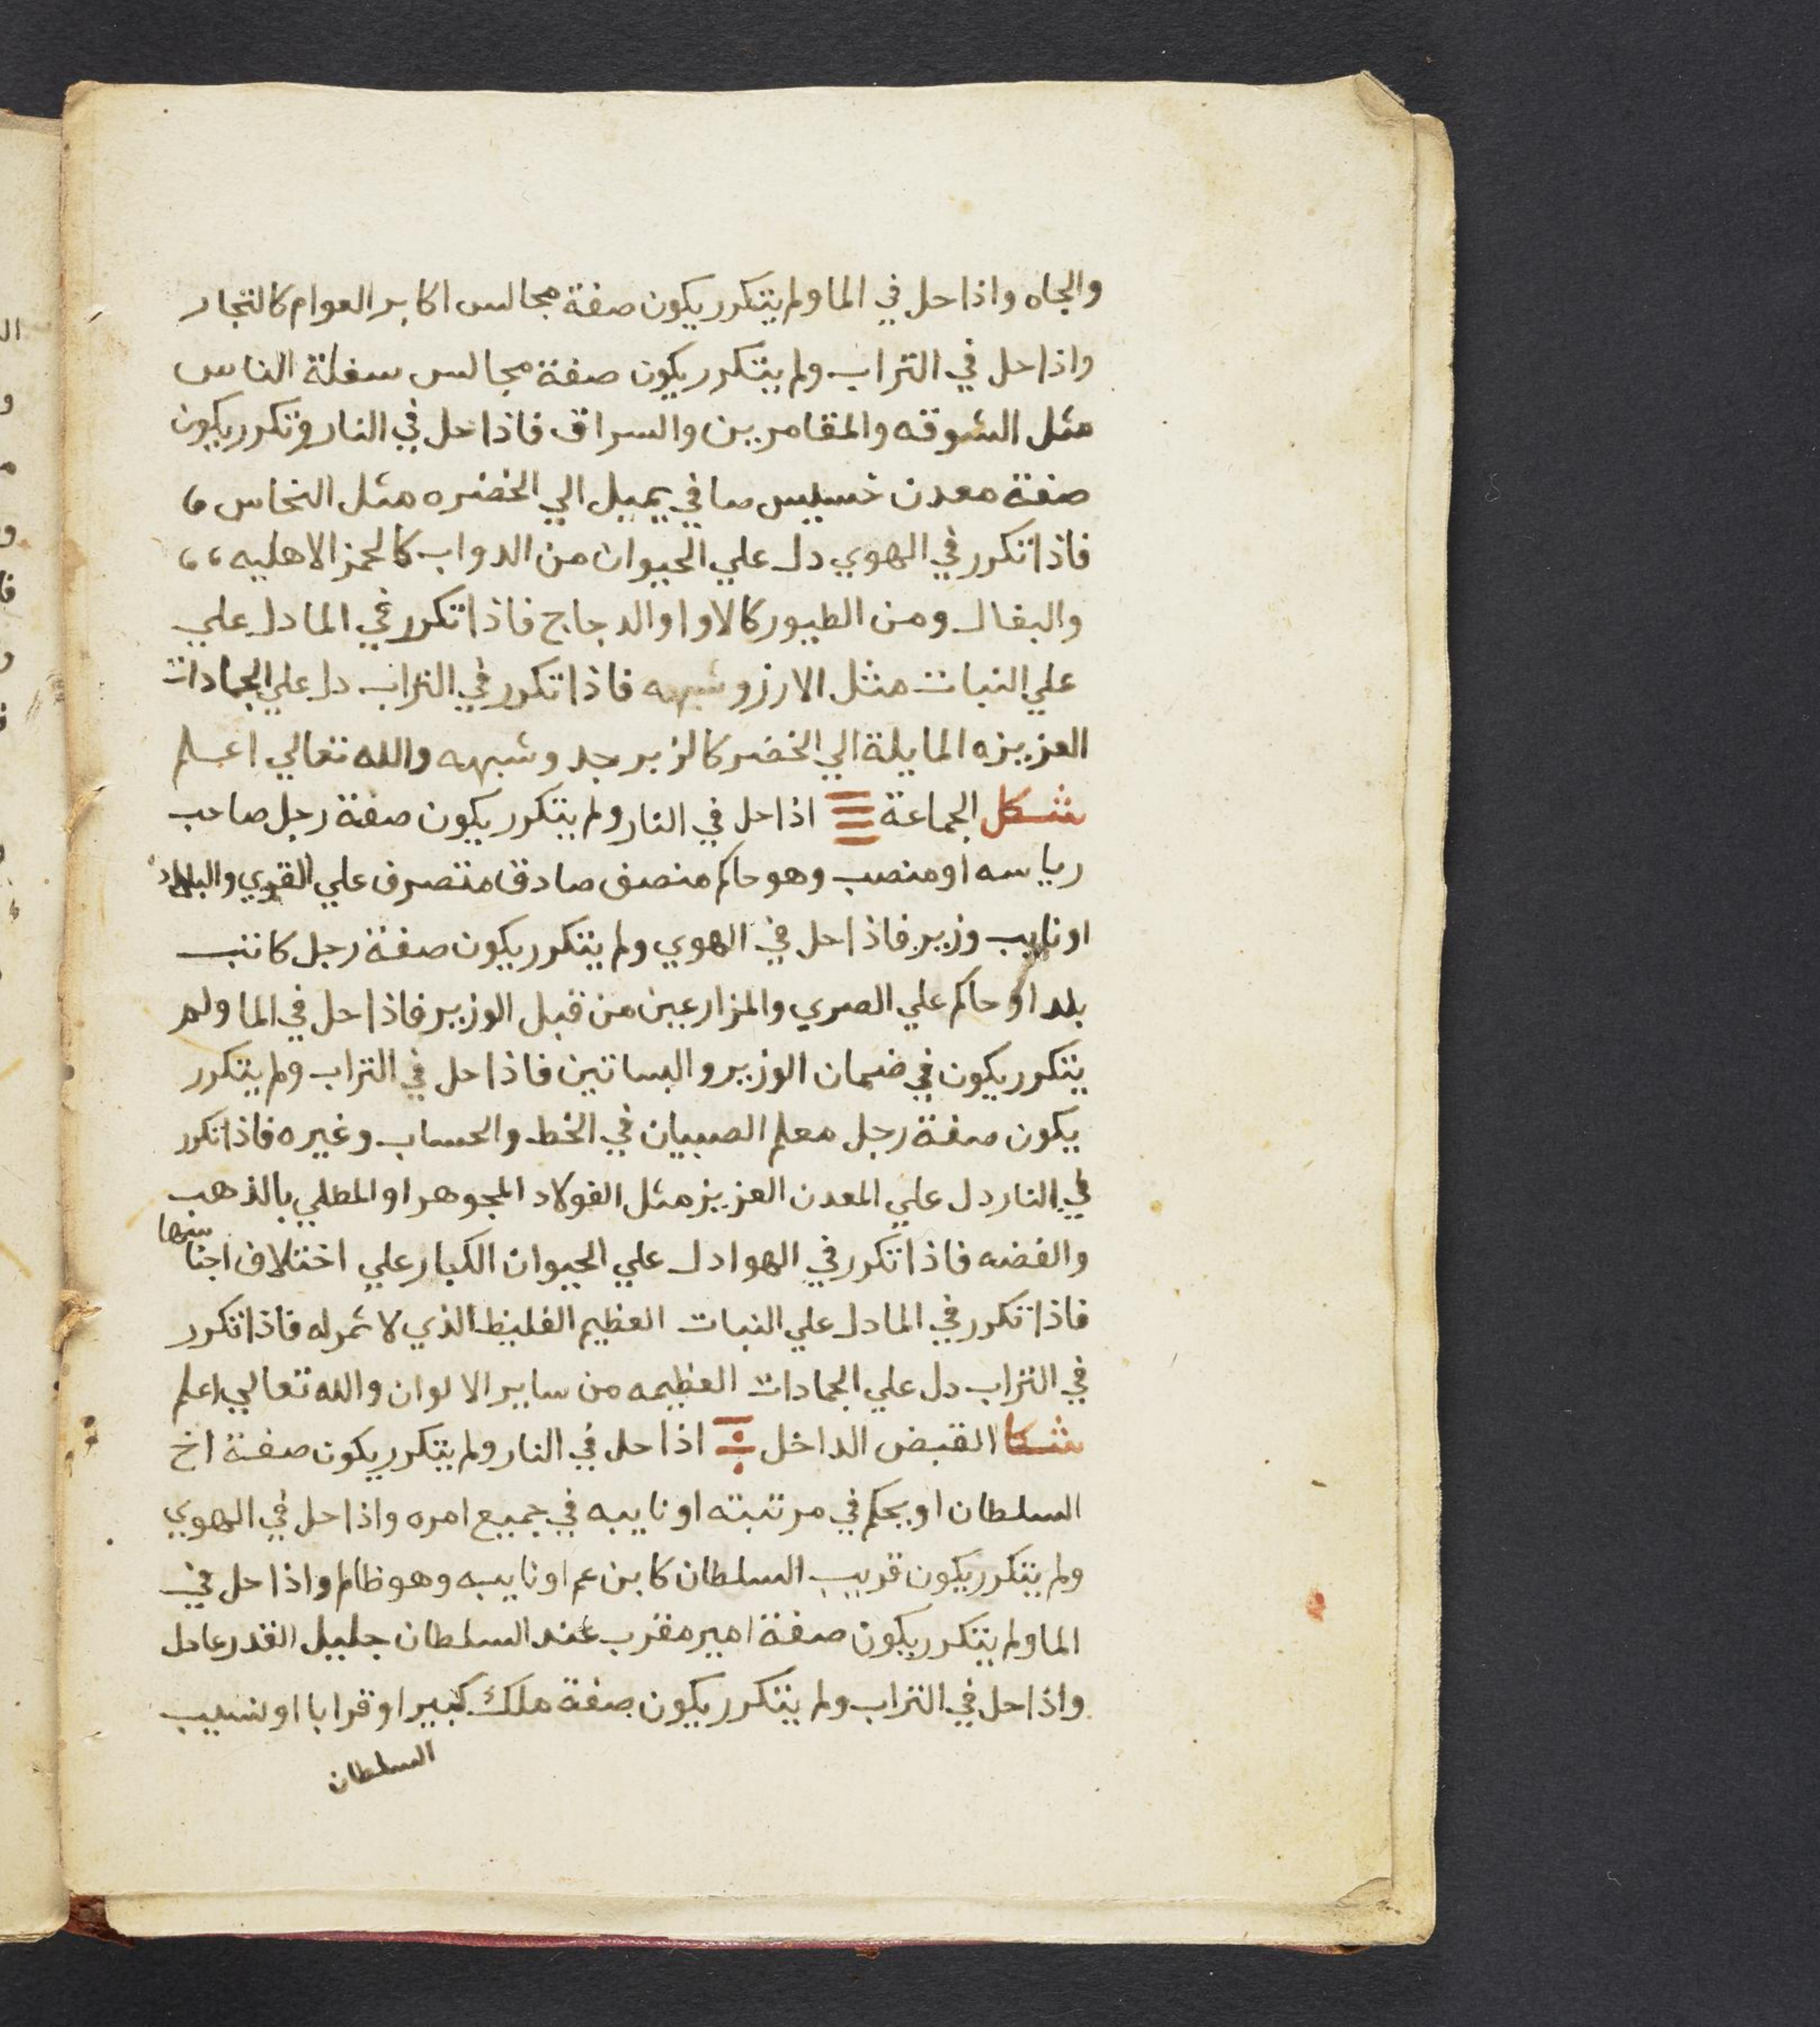 والجاه واذا حل في الما ولم يتكرر يكون صفة مجالس اكابر العوام كالتجار
واذا حل في التراب ولم يتكرر يكون صفة مجالس سفلة الناس
مثل الشوقه والمقامرين والسراق فاذا حل في النار وتكرر يكون
صفة معدن خسيس صافي يميل الي الخضره مثل النحاس ،
فاذا تكرر في الهوي دل علي الحيوان من الدواب كالحمز الاهليه ،،
والبغال ومن الطيور كالاوا والدجاج فاذا تكرر في الما دل علي
علي النبات مثل الارز وشبهه فاذا تكرر في التراب دل علي الجمادات
العزيزه المايلة الي الخضر كالزبرجد وشبهه والله تعالي اعلم
شكل الجماعة اذا حل في النار ولم يتكرر يكون صفة رجل صاحب
رياسه او منصب وهو حاكم منصف صادق متصرف علي القري والبلاد
او نايب وزير فاذا حل في الهوي ولم يتكرر يكون صفة رجل كاتب
بلد او حاكم علي الصري والمزارعين من قبل الوزير فاذا حل في الما ولم
يتكرر يكون في ضمان الوزير والبساتين فاذا حل في التراب ولم يتكرر
يكون صفة رجل معلم الصبيان في الخط والحساب وغيره فاذا تكرر
في النار دل علي المعدن العزيز مثل الفولاد المجوهر او المطلي بالذهب
والفضه فاذا تكرر في الهوا دل علي الحيوان الكبار علي اختلاف اجناسها
فاذا تكرر في الما دل علي النبات العظيم الغليظ الذي لا ثمر له فاذا تكرر
في التراب دل علي الجمادات العظيمه من ساير الالوان والله تعالي اعلم
شكل القبض الداخل اذا حل في النار ولم يتكرر يكون صفة اخ
السلطان او يحكم في مرتبته او نايبه في جميع امره واذا حل في الهوي
ولم يتكرر يكون قريب السلطان كابن عم او نايبه وهو ظالم واذا حل في
الما ولم يتكرر يكون صفة امير مقرب عند السلطان جليل القدر عادل
واذا حل في التراب ولم يتكرر يكون صفة ملك كبير او قرابا او نسيب
السلطان